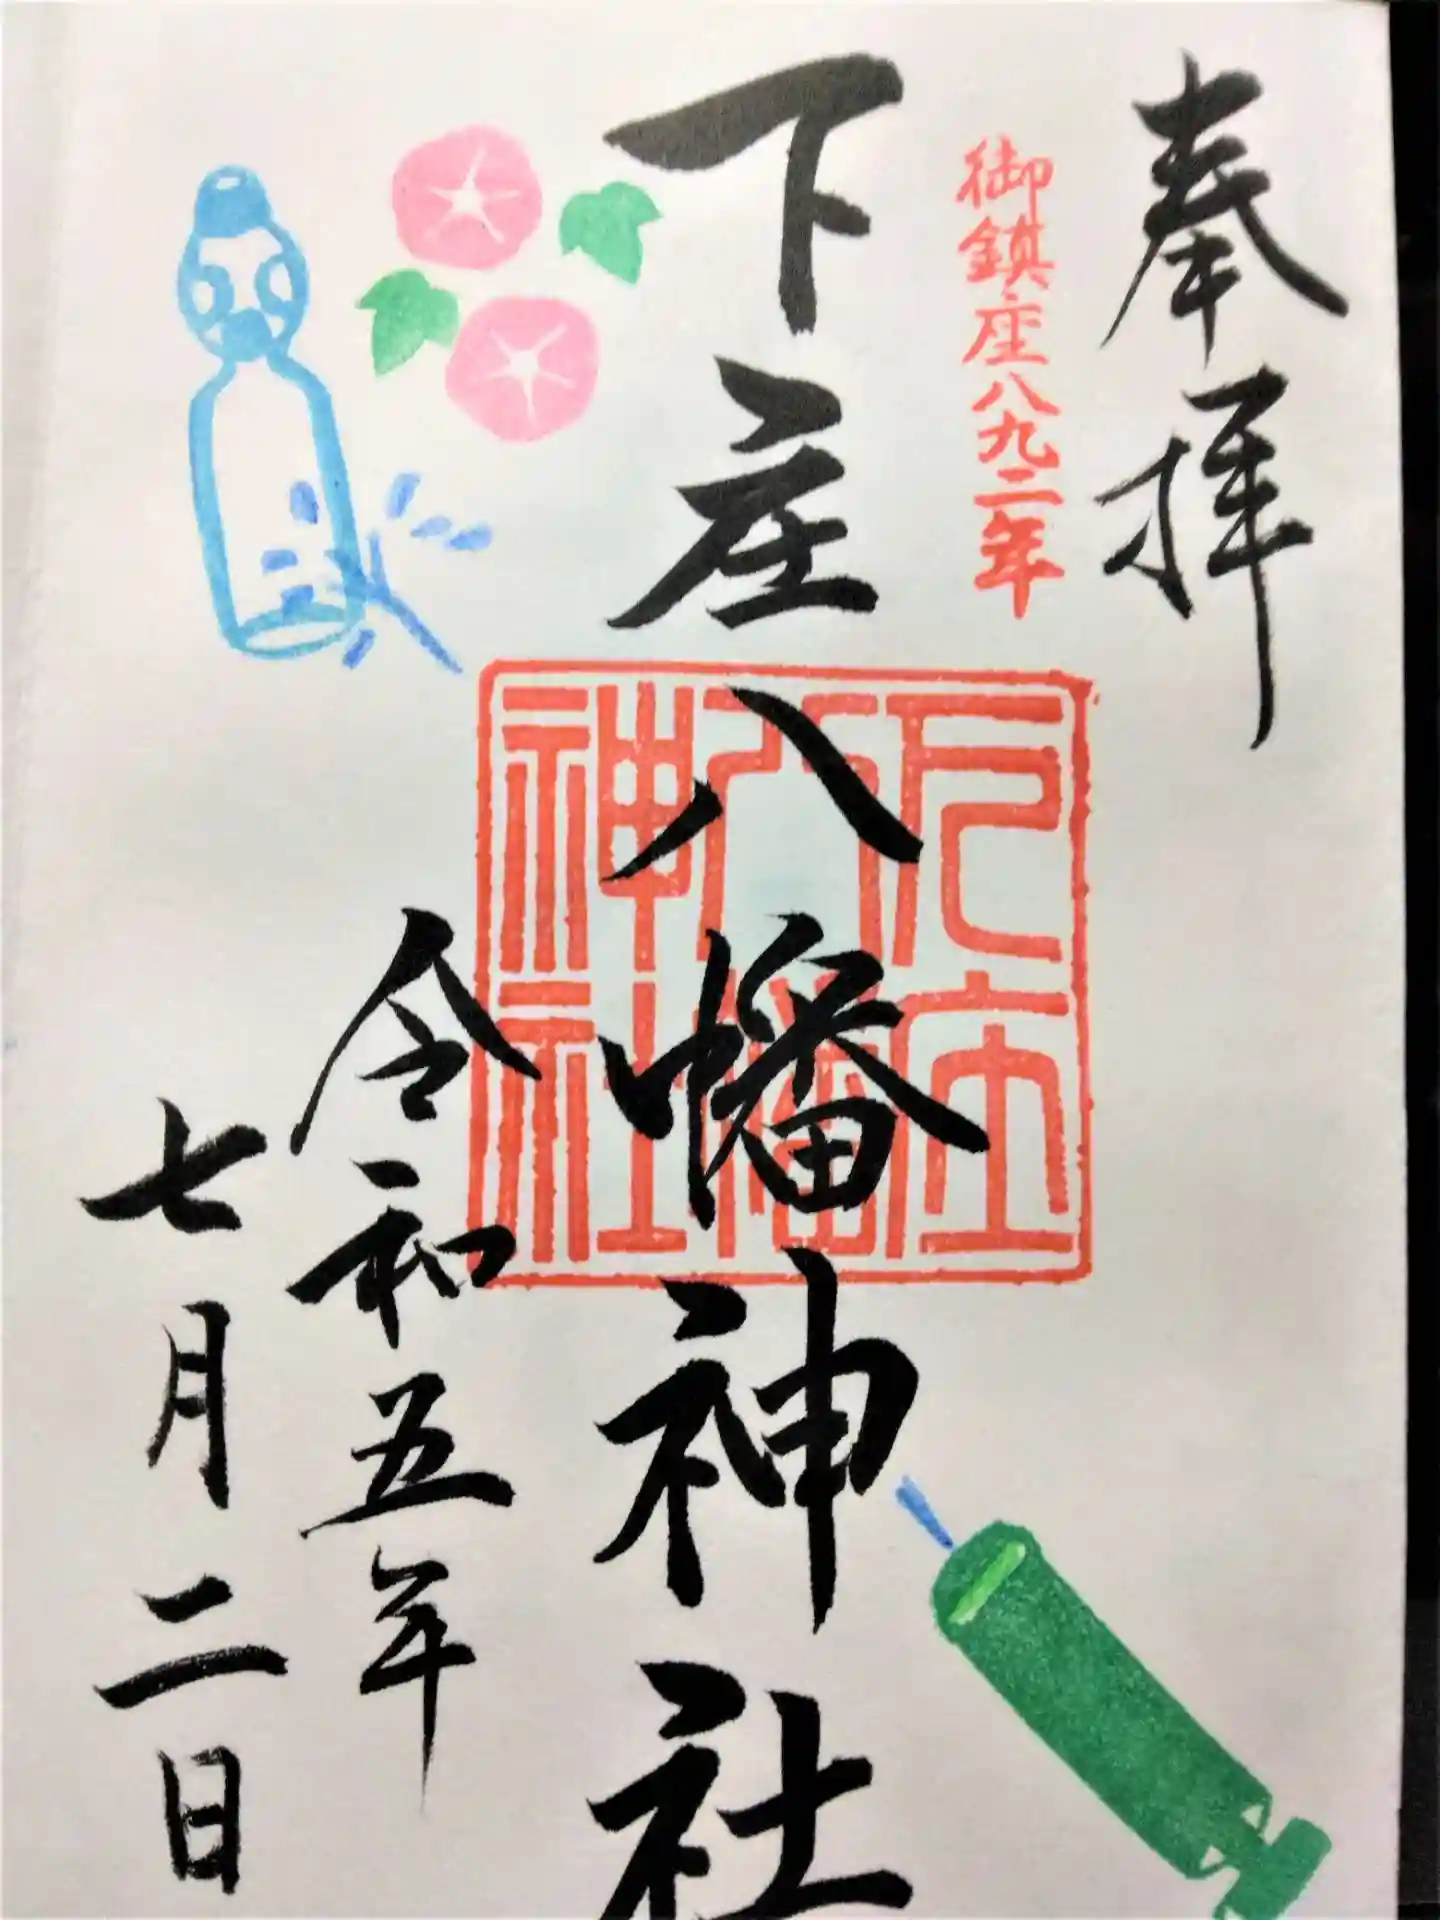 奉拝
御鎮座八九二年
下庄八幡神社
下庄
八幡
神社
令和五年
七月二日